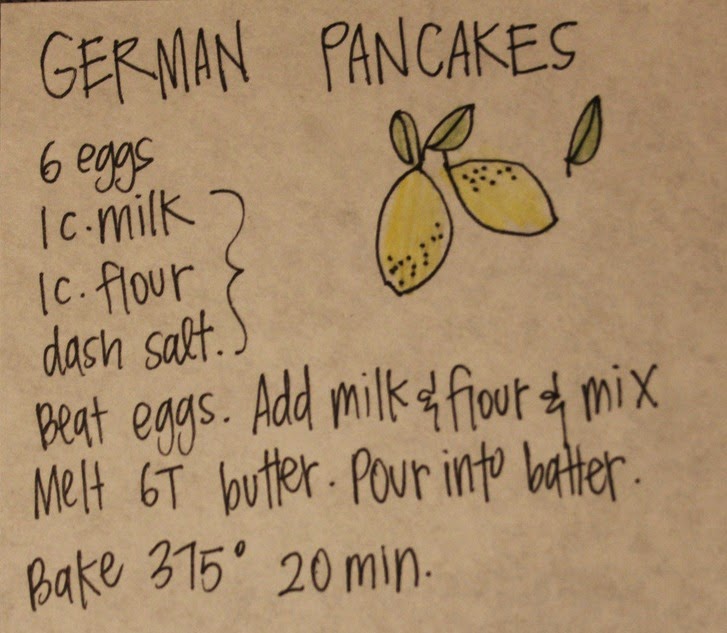 GERMAN PANCAKES
6 eggs
1 c. milk
1 c. flour
dash salt.
Beat eggs. Add milk & flour & mix
Melt 6T butter. Pour into batter.
Bake 375° 20 min.